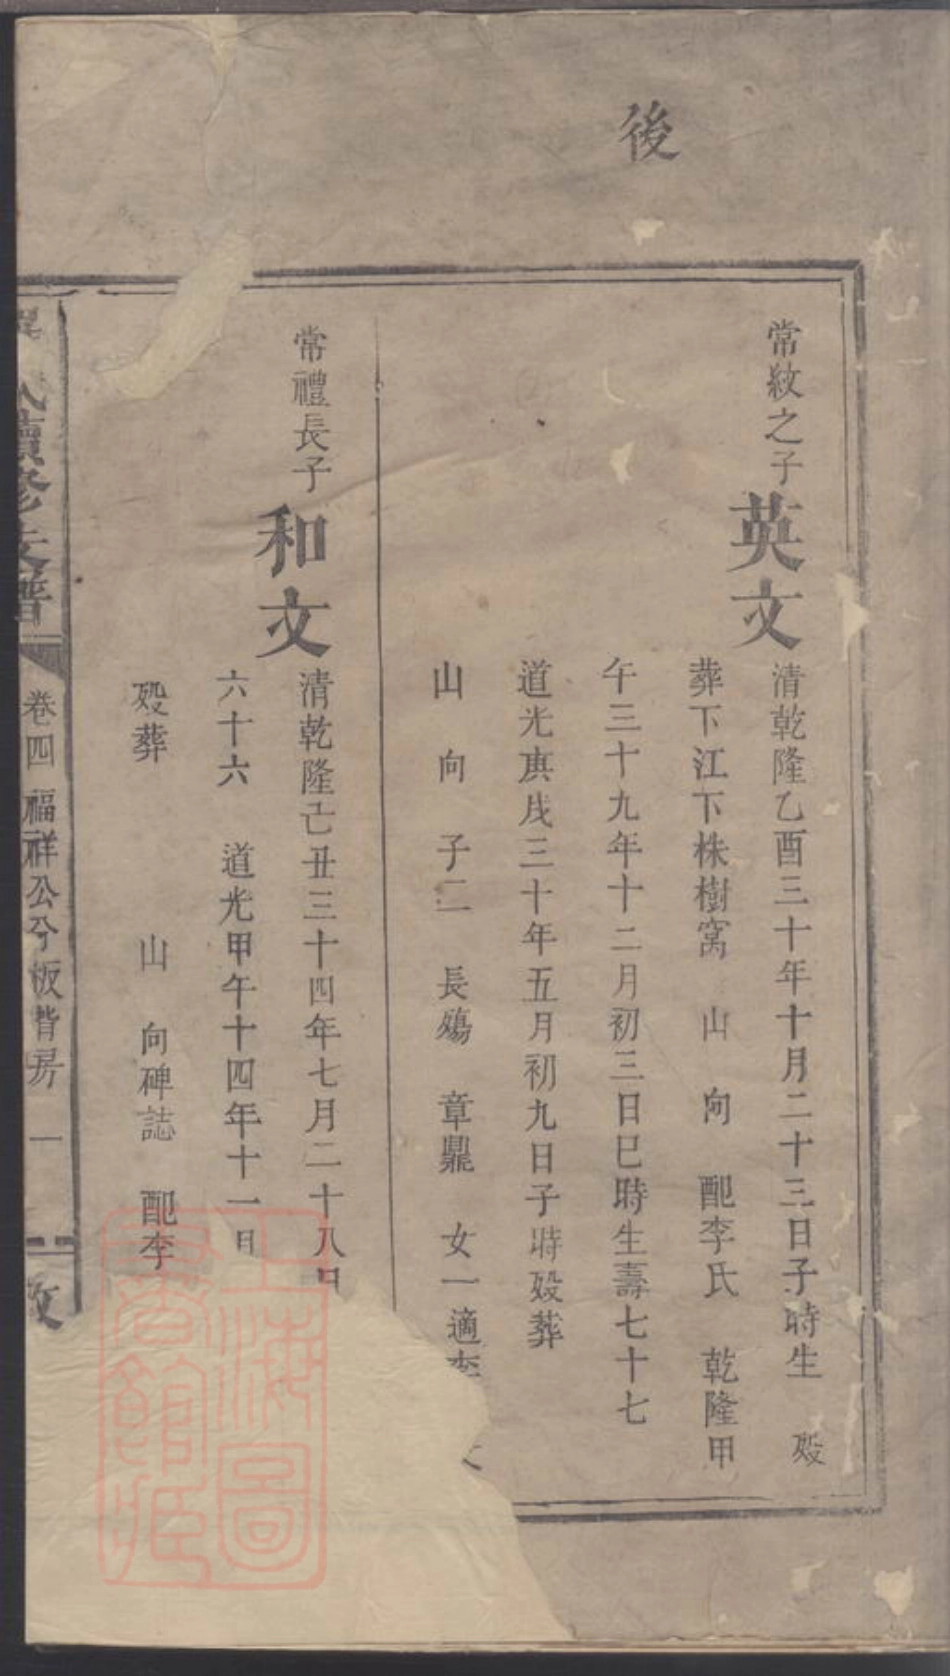 後
常紋之子
英文
清乾隆乙酉三十年十月二十三日子時生 歿
葬下江下株樹窩 山 向 配李氏 乾隆甲
午三十九年十二月初三日巳時生壽七十七
道光庚戌三十年五月初九日子時歿葬
山 向 子二 長殤 章鼎 女一適李
常禮長子
和文
清乾隆己丑三十四年七月二十八日
六十六 道光甲午十四年十一月
歿葬 山 向碑誌 配李
氏續修支譜
卷四 福祥公分板背房 一
上海圖書館藏